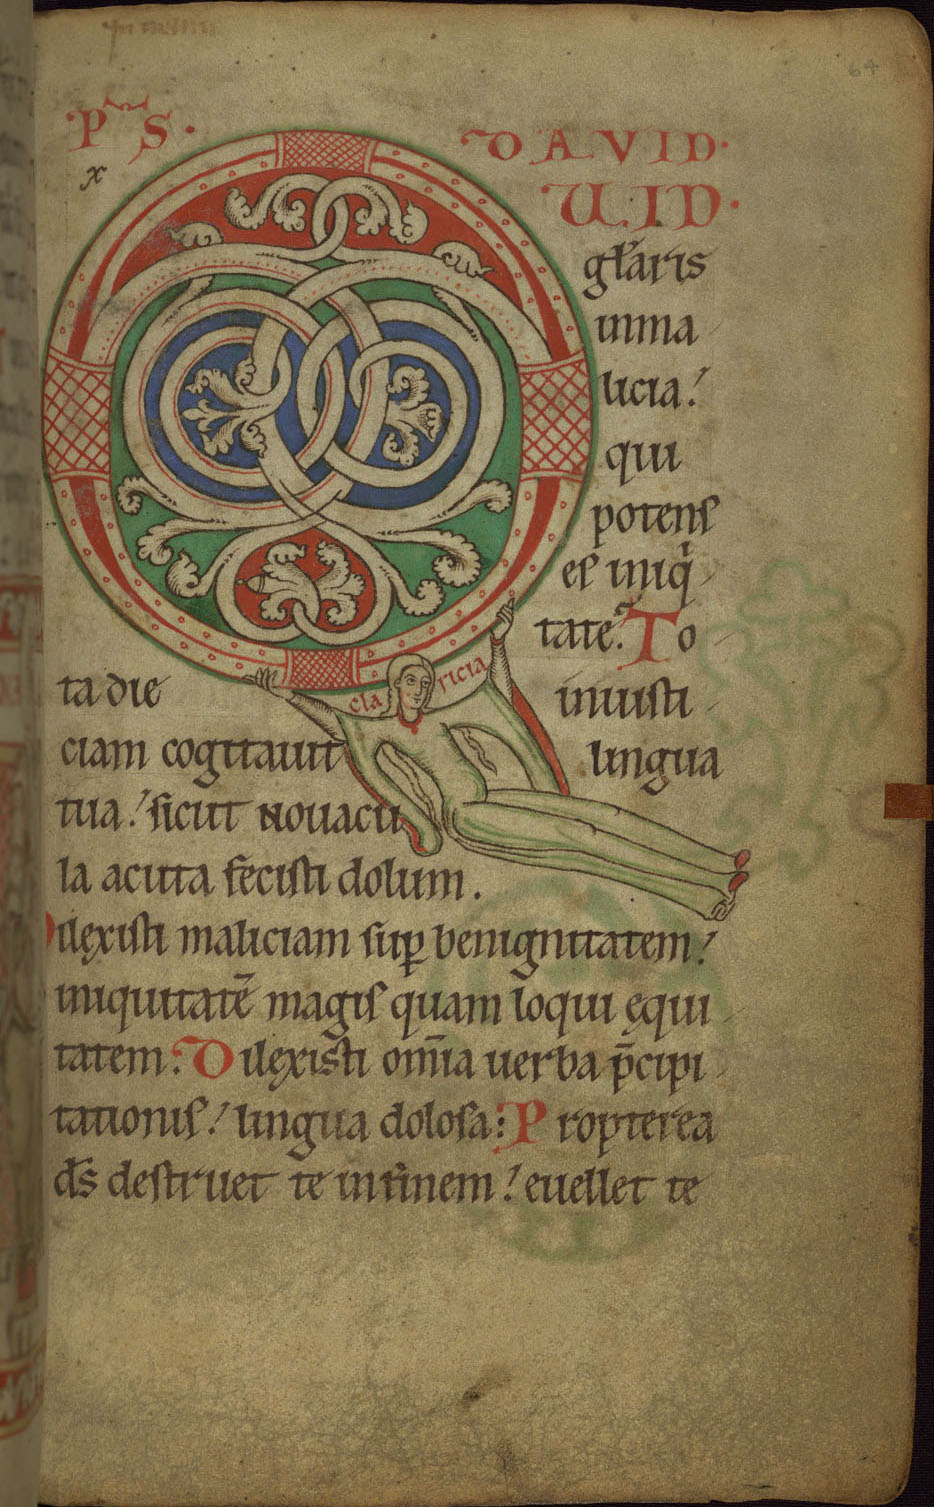 64
PS DAVID
x
QUID
gl̄aris
inma
licia!
qui
potens
es iniq
tate? To
ta die iniusti
claricia
ciam cogitauit lingua
tua! sicut nouacu
la acuta fecisti dolum.
Dilexisti maliciam sup benignitatem!
iniquitatē magis quam loqui ęqui
tatem: Dilexisti om̄ia uerba p̄cipi
tationis! lingua dolosa: Propterea
ds̄ destruet te in finem! euellet te